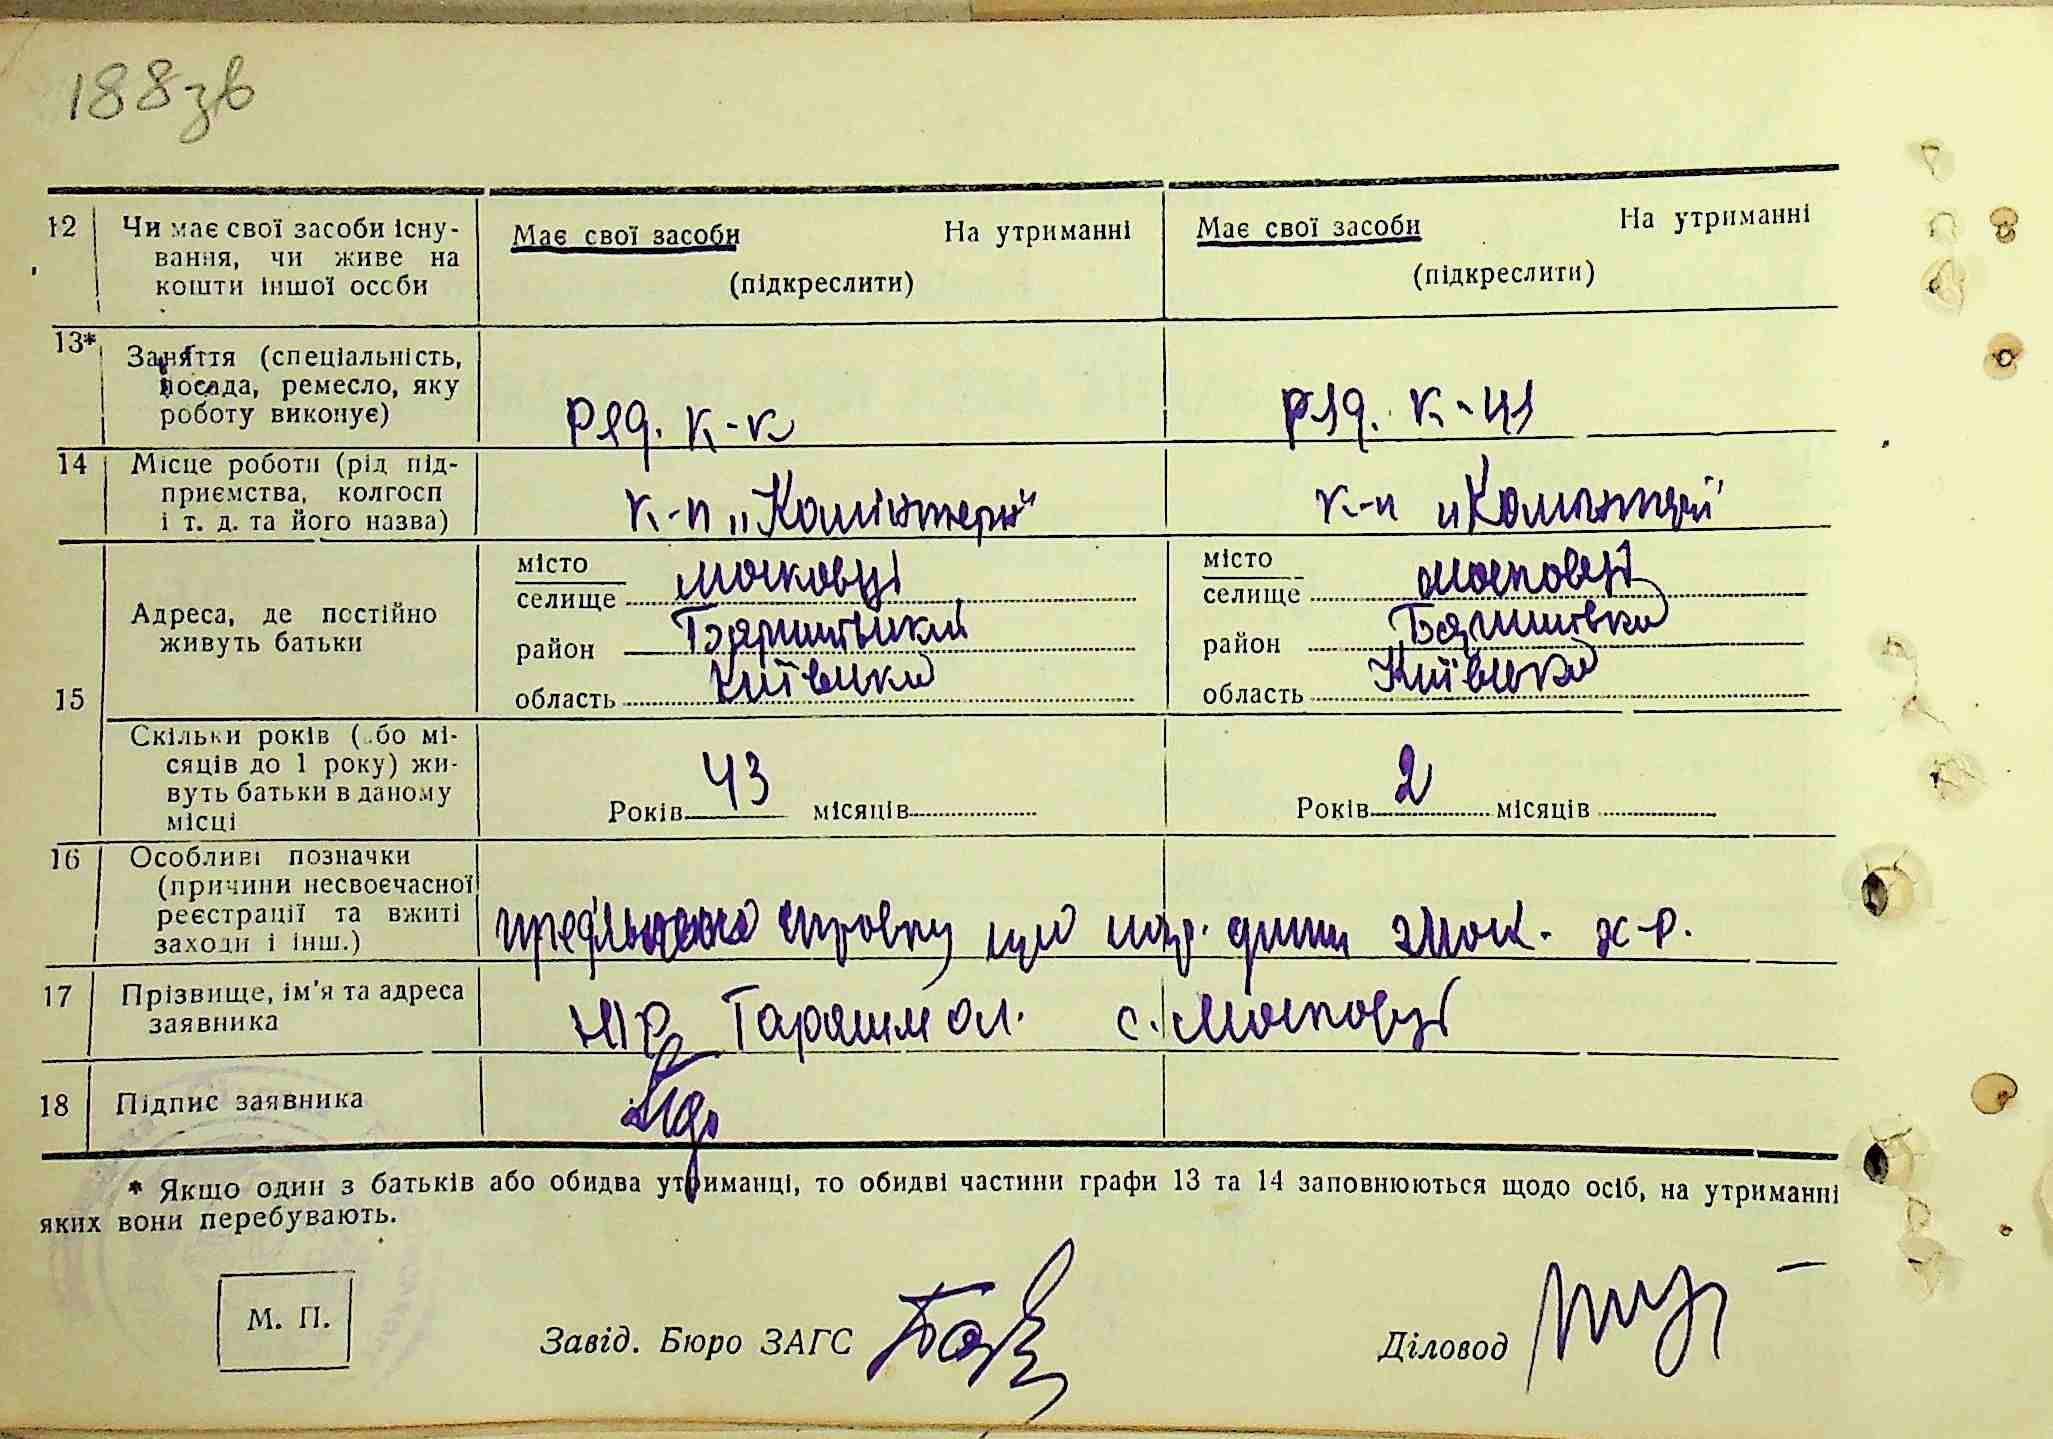 188зв
12 Чи має свої засоби існу-
вання, чи живе на
кошти іншої особи
Має свої засоби На утриманні
(підкреслити)
Має свої засоби На утриманні
(підкреслити)
13* Заняття (спеціальність,
посада, ремесло, яку
роботу виконує)
ряд. к-к
ряд. к-ця
14 Місце роботи (рід під-
приємства, колгосп
і т. д. та його назва)
к-п „Комінтерн"
к-п „Комінтерн"
15 Адреса, де постійно
живуть батьки
місто
селище Московці
район Баришівський
область Київська
місто
селище Московці
район Баришівка
область Київська
Скільки років (або мі-
сяців до 1 року) жи-
вуть батьки в даному
місці
Років 43 місяців
Років 2 місяців
16 Особливі позначки
(причини несвоєчасної
реєстрації та вжиті
заходи і інш.)
справку що
17 Прізвище, ім'я та адреса
заявника
с. Московці
18 Підпис заявника
* Якщо один з батьків або обидва утриманці, то обидві частини графи 13 та 14 заповнюються щодо осіб, на утриманні
яких вони перебувають.
М. П.
Завід. Бюро ЗАГС
Діловод